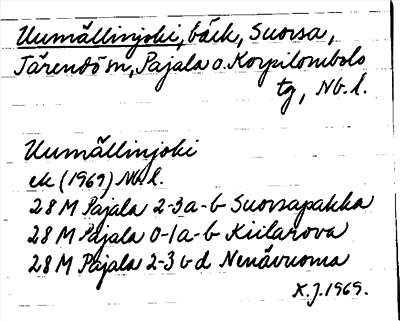 Uumällinjoki, bäck, Suorsa,
Tärendö sn, Pajala o. Korpilombolo
tg, Nb. l.
Uumällinjoki
ek (1969) Nb. l.
28 M Pajala 2-3 a-b Suorsapakka
28 M Pajala 0-1 a-b Kiilarova
28 M Pajala 2-3 c-d Nenävuoma
K.J. 1969.